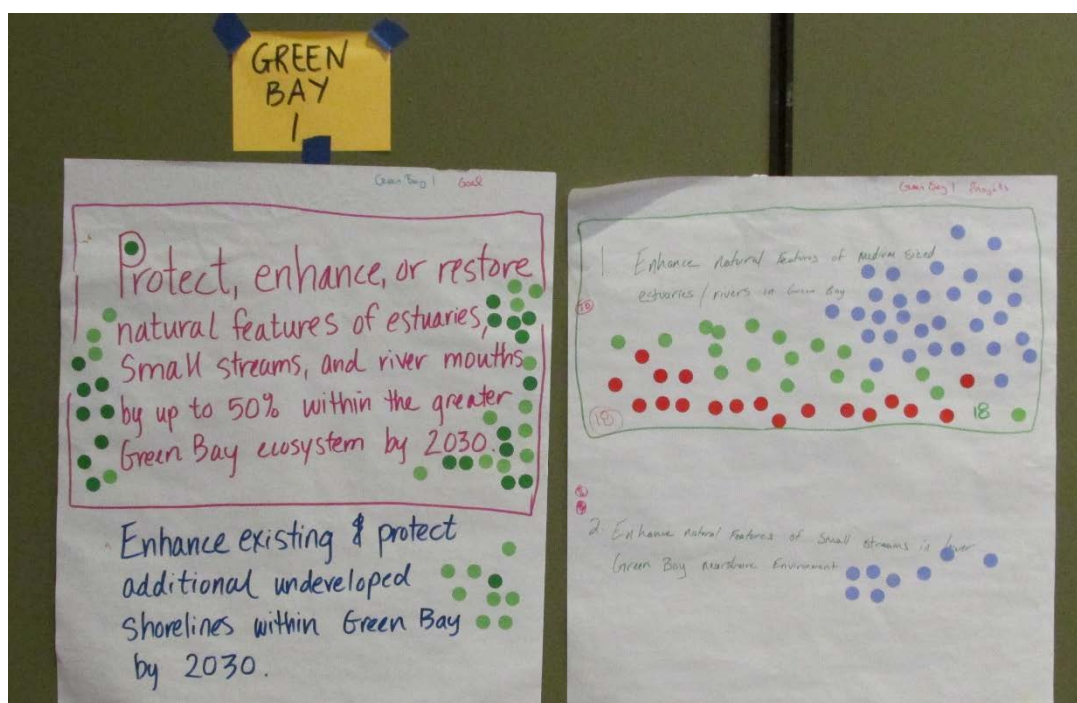 GREEN
BAY
1
Green Bay 1 Goal
Protect, enhance, or restore
natural features of estuaries,
Small streams, and river mouths
by up to 50% within the greater
Green Bay ecosystem by 2030.
Enhance existing & protect
additional undeveloped
Shorelines within Green Bay
by 2030.
Green Bay 1
1 Enhance natural features of medium sized
estuaries/rivers in Green Bay
18
18
2. Enhance natural features of Small streams in lower
Green Bay nearshore Environment